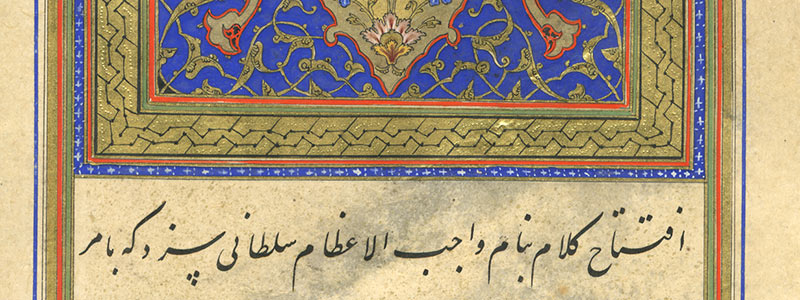 افتتاح کلام بنام واجب الاعظام سلطانی سزد که بامر